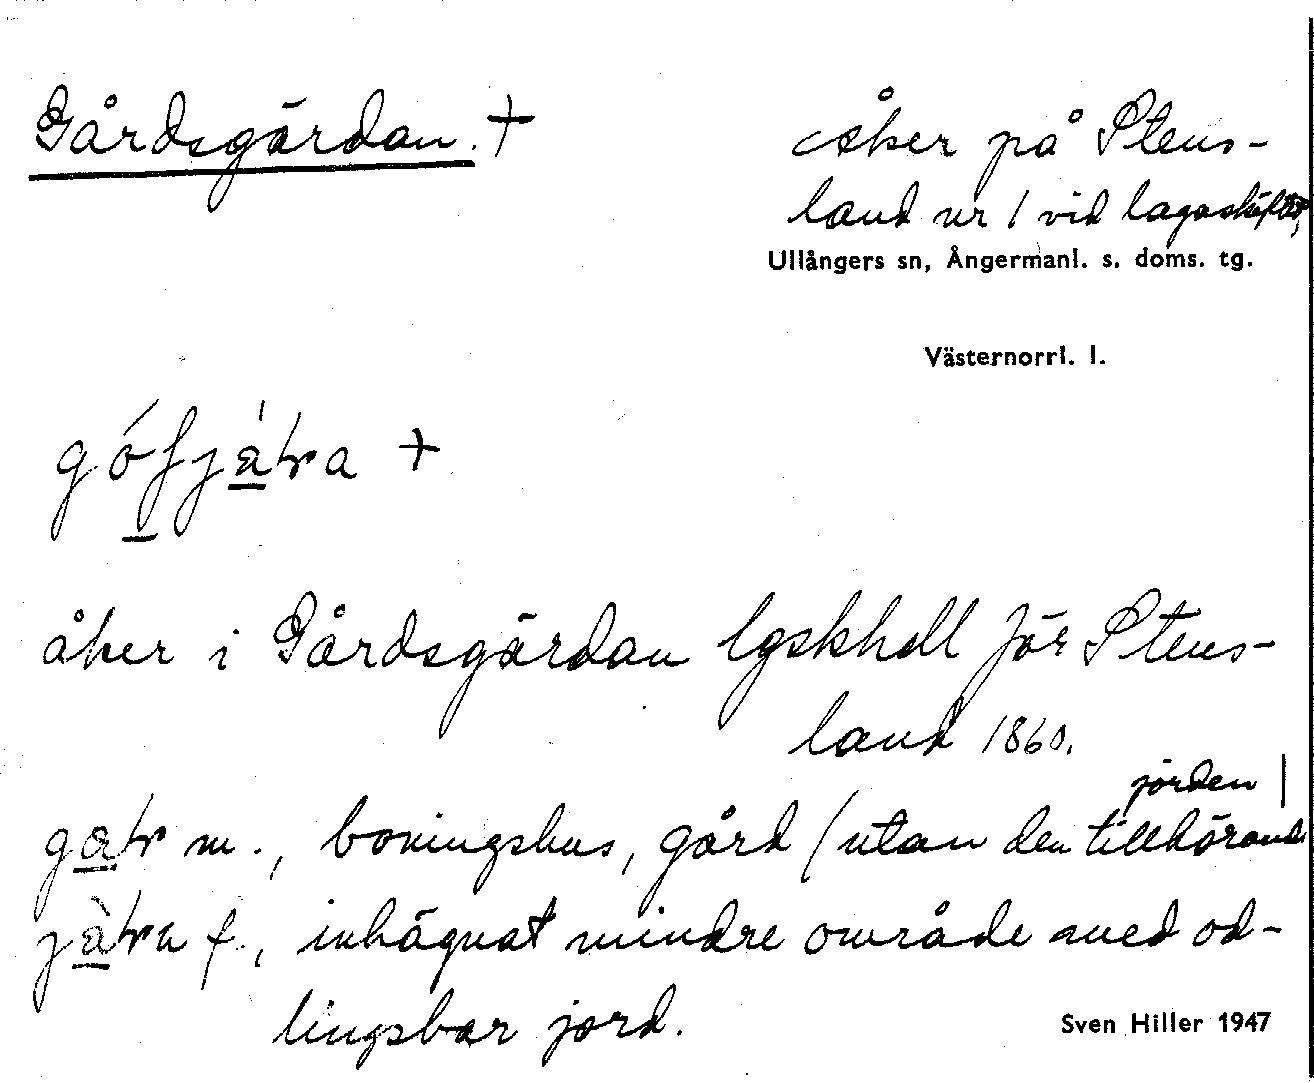 Gårdsgärdan. +
Åker på Stens-
land nr 1 vid lagaskiftet,
Ullångers sn, Ångermanl. s. doms. tg.
Västernorrl. l.
åker i Gårdsgärdan lgskhdl för Stens-
land 1860.
m., boningshus, gård (utan den tillhörande
jorden
f., inhägnat mindre område med od-
lingsbar jord.
Sven Hiller 1947